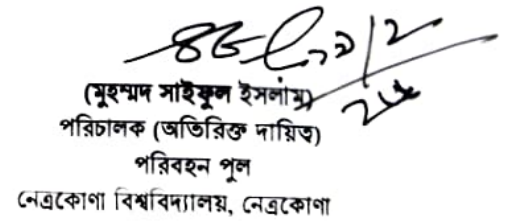 (মুহম্মদ সাইফুল ইসলাম)
পরিচালক (অতিরিক্ত দায়িত্ব)
পরিবহন পুল
নেত্রকোণা বিশ্ববিদ্যালয়, নেত্রকোণা